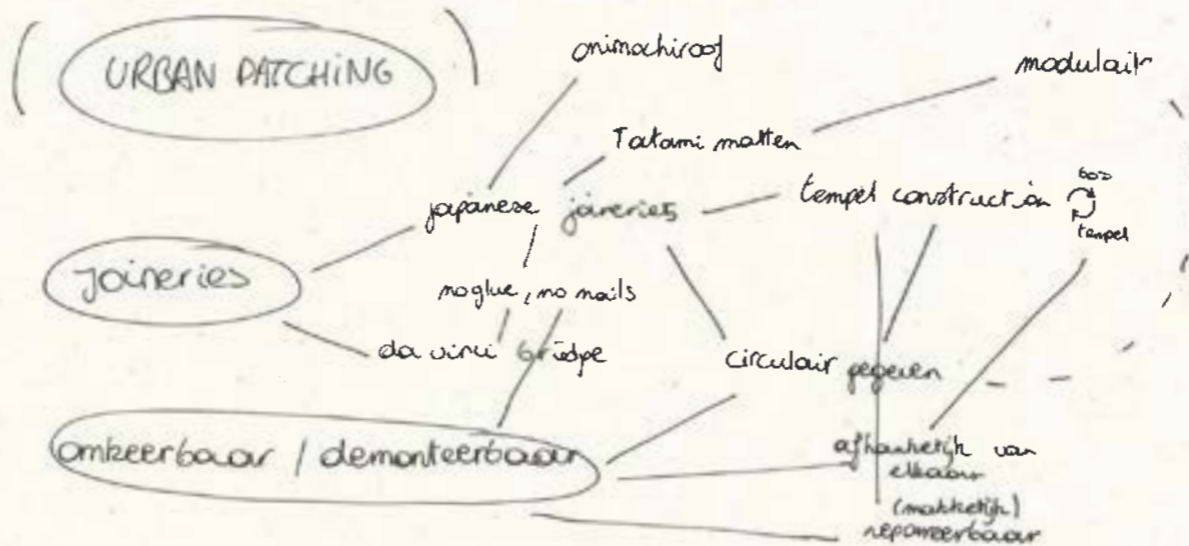 ( URBAN PATCHING )
onimachiroof
modulair
Tatami matten
japanese joineries
tempel construction
bos
tempel
Joineries
no glue, no nails
da vinci bridge
circulair gegeven
omkeerbaar / demonteerbaar
afhankelijk van
elkaar
(makkelijk)
repareerbaar